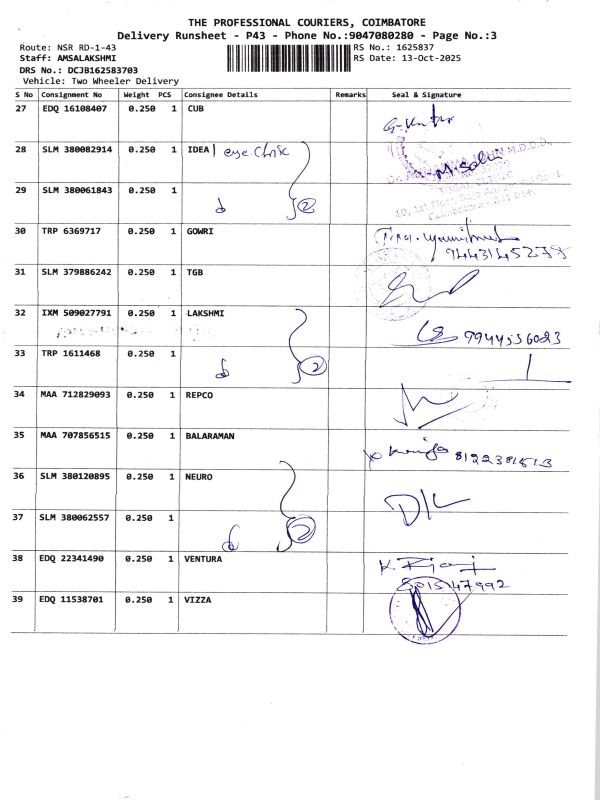 THE PROFESSIONAL COURIERS, COIMBATORE
Delivery Runsheet - P43 - Phone No.:9047080280 - Page No.:3
Route: NSR RD-1-43 RS No.: 1625837
Staff: AMSALAKSHMI RS Date: 13-Oct-2025
DRS No.: DCJB162583703
Vehicle: Two Wheeler Delivery
S No Consignment No Weight PCS Consignee Details Remarks Seal & Signature
27 EDQ 16108407 0.250 1 CUB
28 SLM 380082914 0.250 1 IDEA eye Clinic
29 SLM 380061843 0.250 1
2
30 TRP 6369717 0.250 1 GOWRI
9443145278
31 SLM 379886242 0.250 1 TGB
32 IXM 509027791 0.250 1 LAKSHMI
9944556023
33 TRP 1611468 0.250 1
2
34 MAA 712829093 0.250 1 REPCO
35 MAA 707856515 0.250 1 BALARAMAN
36 SLM 380120895 0.250 1 NEURO
37 SLM 380062557 0.250 1
2
38 EDQ 22341490 0.250 1 VENTURA
8015147992
39 EDQ 11538701 0.250 1 VIZZA